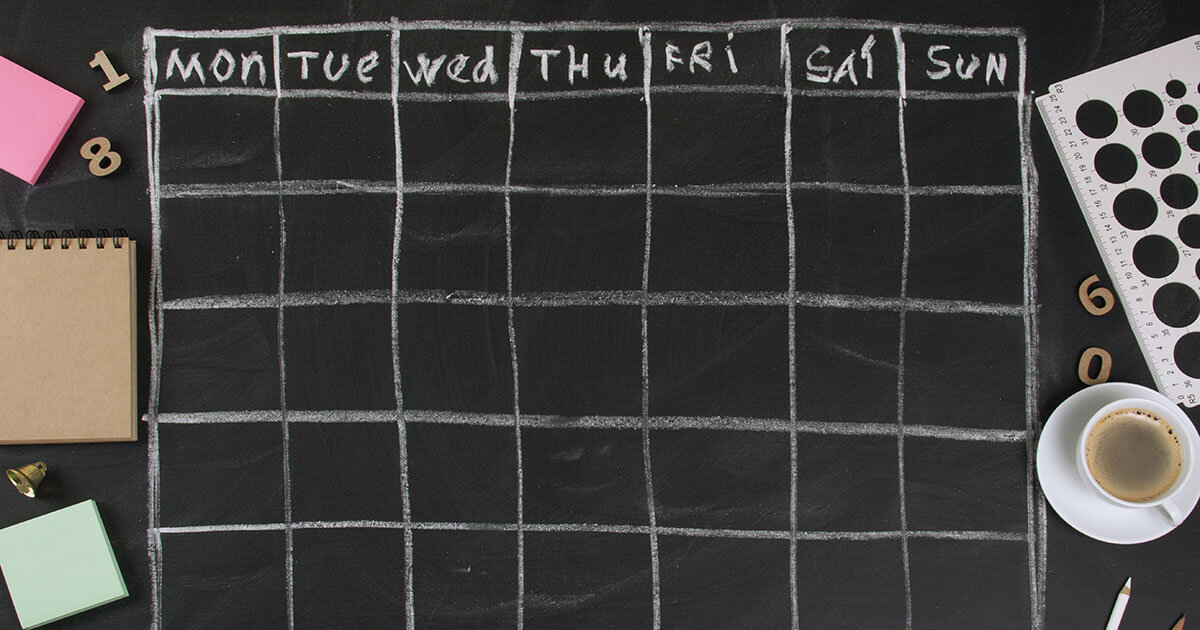 MOn TUe Wed THu FRi SAt SUN
1
8
6
0